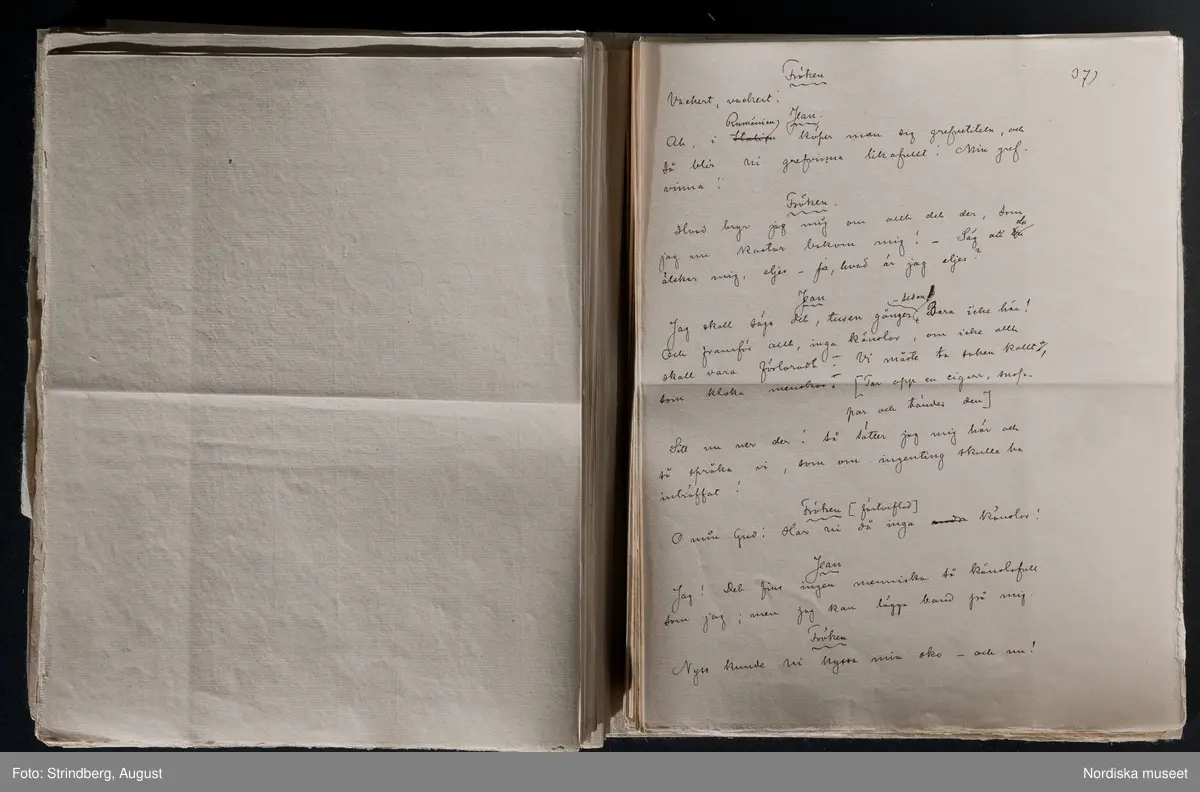 37)
Fröken
Vackert, vackert!
Jean.
Ah, i Italien Rumänien köper man sig grefvetiteln, och
så blir ni grefvinna likafullt! Min gref-
vinna!
Fröken.
Hvad bryr jag mig om allt det der, som
jag nu kastar bakom mig! – Säg att du
älskar mig, eljes – ja, hvad är jag eljes?
Jean
Jag skall säga det, tusen gånger – sedan! Bara icke här!
Och framför allt, inga känslor, om icke allt
skall vara förloradt! Vi måste ta saken kallt,
som kloka menskor. [Tar opp en cigarr, snop-
par och tänder den]
Sitt nu ner der! så sätter jag mig här och
så språka vi, som om ingenting skulle ha
inträffat!
Fröken [förtviflad]
O min Gud! Har ni då inga känslor!
Jean
Jag! Det fins ingen menniska så känslofull
som jag; men jag kan lägga band på mig.
Fröken
Nyss kunde ni kyssa min sko – och nu!
Foto: Strindberg, August
Nordiska museet